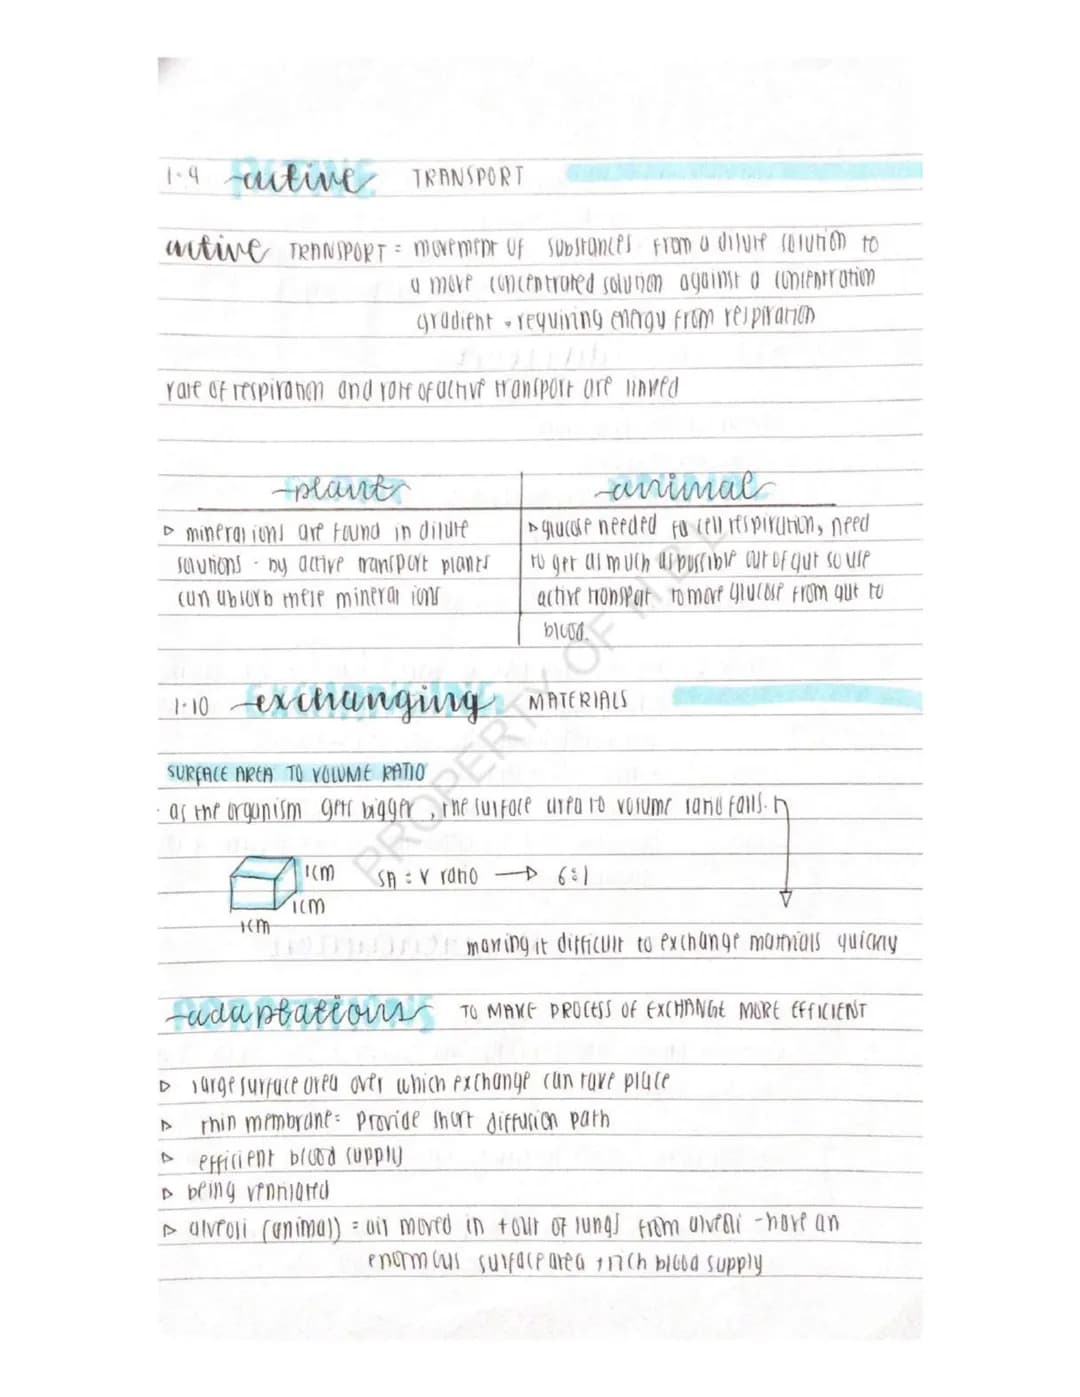 1.9 active TRANSPORT
active TRANSPORT = movement of substances from a dilute solution to
a more concentrated solution against a concentration
gradient - requiring energy from respiration
rate of respiration and rate of active transport are linked
plant
▷ mineral ions are found in dilute
solutions - by active transport plants
can absorb these mineral ions
animal
▷ glucose needed for cell respiration, need
to get as much as possible out of gut so use
active transport to move glucose from gut to
blood.
1.10 exchanging MATERIALS
SURFACE AREA TO VOLUME RATIO
· as the organism gets bigger, the surface area to volume ratio falls.
1cm
SA : V ratio → 6:1
1cm
1cm
making it difficult to exchange materials quickly
adaptations TO MAKE PROCESS OF EXCHANGE MORE EFFICIENT
▷ large surface area over which exchange can take place
▷ thin membrane = provide short diffusion path
▷ efficient blood supply
▷ being ventilated
▷ alveoli (animal) = air moved in + out of lungs from alveoli - have an
enormous surface area + rich blood supply
PROPERTY OF H.B.L